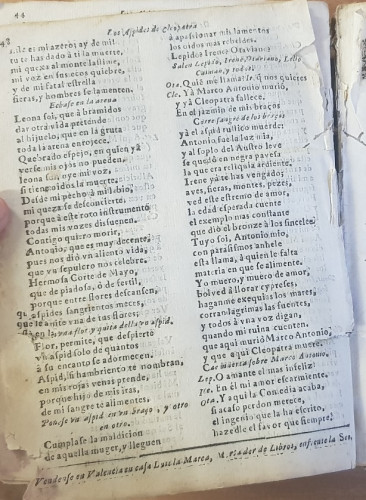 44
Los Aspides de Cleopatra
te has dado à ti la muerte,
mi quexa al monte lastime,
mi voz en sus ecos quiebre,
y de mi fatal estrella
fieras, y hombres se lamenten.
Echase en la arena
Leona soi, que à bramidos
dar otra vida pretende
al hijuelo, que en la gruta
toda la arena enrojece.
Quebrado espejo, en quien yà
verse mis ojos no pueden,
leona soi, oye mi voz,
si tieng oidos la muerte;
Desde mi pecho à mi labio,
mi quexa se desconcierte,
porque à este roto instrumento
todas mis vozes disuenen.
Contigo quiero morir,
Antonio, que es muy decente,
pues nos diò vn aliento vida,
que vn sepulcro nos celebre.
Hermosa Corte de Mayo,
que de piadosa, ò de fertil,
porque entre flores descansen,
aspides sangrientos meces,
que le anite vna de tus flores;
Flor, permite, que despierte
vn aspid solo de quantos
à su encanto se adormecen.
Aspid, si hambriento te nombran,
en mis rojas venas prende,
porque hijo de mis iras,
de mi sangre te alimentes,
Ponese vn aspid en vn braço, y otro
en otro.
Cumplase la maldicion
de aquella muger, y lleguen
à apasionar mis lamentos
los oidos mas rebeldes.
Lepido? Irene? Otaviano?
Salen Lepido, Irene, Octaviano, Lelio
Caiman, y todos.
Ota. Quiè me llama? Ir. q nos quieres
Cle. Yà Marco Antonio muriò,
y yà Cleopatra fallece.
En el jazmin de mis braços
Corre sangre de los braços
yà el aspid rustico muerde;
Antonio fue la luz mia,
y al soplo del Austro leve
se quedò en negra pavesa
la que era reliquia ardiente.
Irene yà te has vengado;
aves, fieras, montes, pezes,
ved este estremo de amor,
la edad esperada cuente
el exemplo mas constante
que diò el bronze à los sinceles.
Tuyo soi, Antonio mio,
con parasismos anhele
esta llama, à quien le falta
materia en que se alimente.
Yo muero, y muero de amor,
bolved à llorar cypreses,
haganme exequias los mares,
corran lagrimas las fuentes,
y todos à vna voz digan,
quando mi ruina cuenten,
que aqui muriò Marco Antonio,
y que aqui Cleopatra muere.
Cae muerta sobre Marco Antonio.
Lep. O amante el mas infeliz!
Ire. En èl mi amor escarmiente.
Ota. Y aqui la Comedia acaba,
si acaso perdon merece,
el ingenio que la ha escrito,
hazedle el favor que siempre.
Vendense en Valencia en casa Luis la Marca, Mercader de Libros, enfrente la Seo.